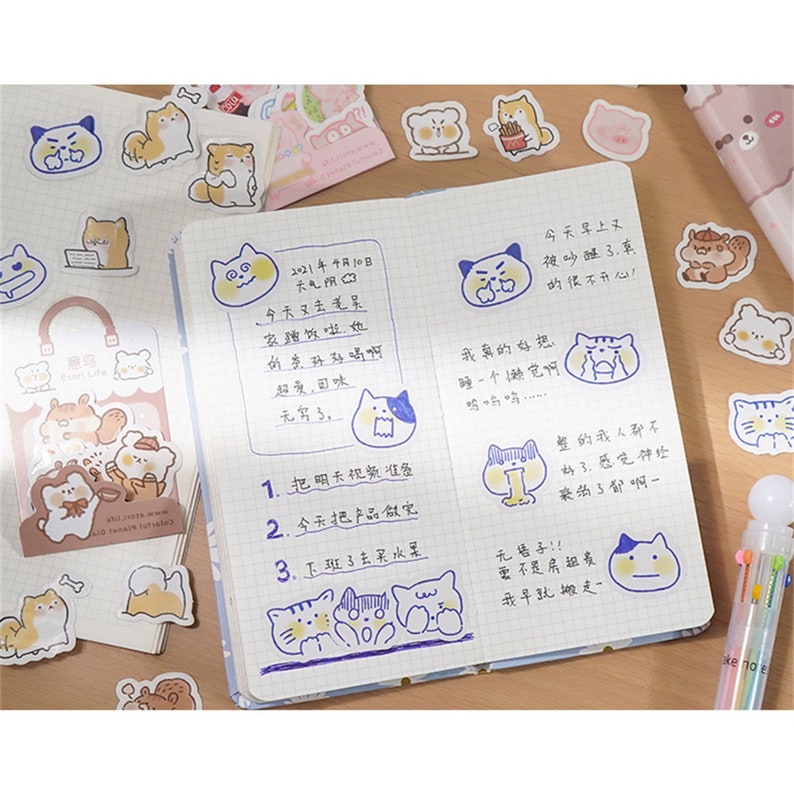 2021年4月10日
天气阴
今天又去老吴
家蹭饭啦.她
的茶好好喝啊
超爱.回味
无穷了。
1. 把明天视频准备
2. 今天把产品做完
3. 下班了去买水果
今天早上又
被吵醒了.真
的很不开心!
我真的好想
睡一个懒觉啊
呜呜呜……
整的我人都不
好了.感觉神经
衰弱了都啊一
无语子!!
要不是房租贵
我早就搬走~
意鸟
Etori Life
www.etori.life
Colorful Planet Dia
www.etori.life
Colorful Planet Diary
ake note